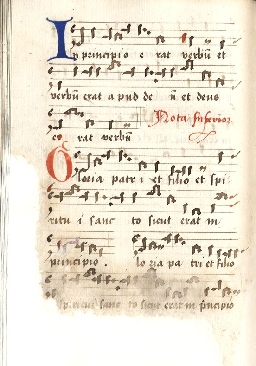 In principio e rat verbũ et
verbũ erat a pud de ũ et deus
Nota superior
e rat verbũ
Gloria patr i et filio et spi
ritu i sanc to sicut erat in
principio . lo ria pa tri et filio
spiritui sanc to sicut erat in p̃ncipio